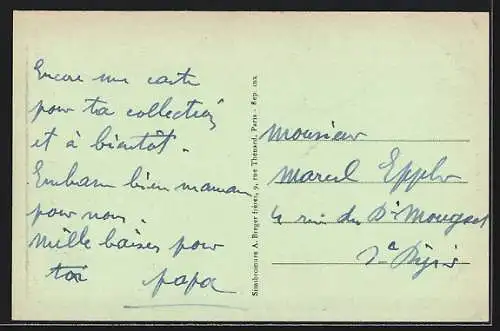 Encore une carte
pour ta collection
et à bientôt.
Embrasse bien maman
pour nous.
Mille baises pour
toi papa
Simili-bromure A. Breger frères, 9, rue Thénard, Paris - Rep. aux
Monsieur
Marcel Eppler
4 rue du Dr Mouget